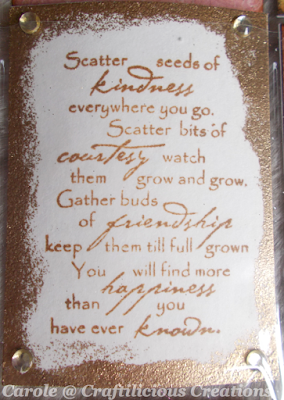 Scatter seeds of
kindness
everywhere you go.
Scatter bits of
courtesy watch
them grow and grow.
Gather buds
of friendship
keep them till full grown
You will find more
happiness
than you
have ever known.
Carole @ Craftilicious Creations